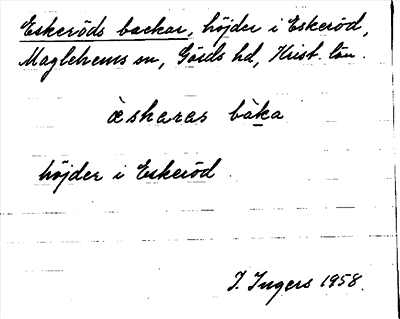 Eskeröds backar, höjder i Eskeröd,
Maglehems sn, Gärds hd, Krist. län.
èskaras bàka
höjder i Eskeröd.
I. Ingers 1958.